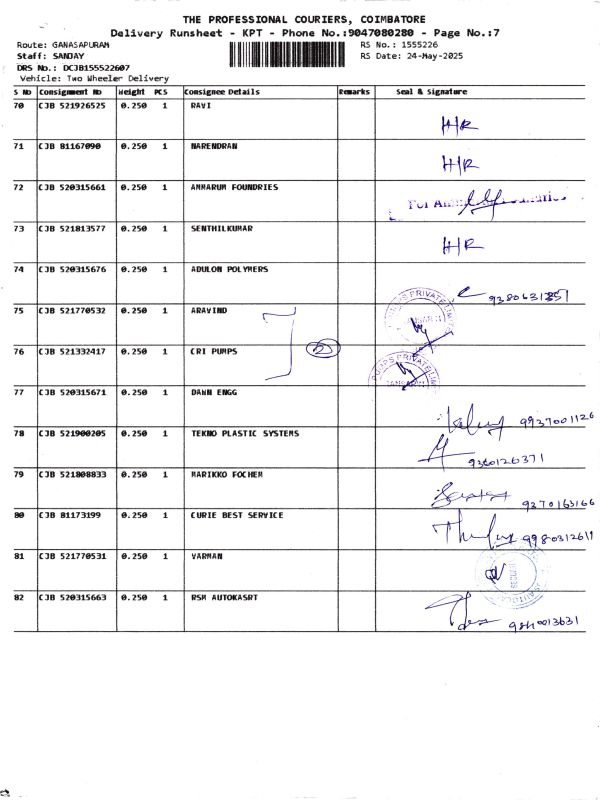 THE PROFESSIONAL COURIERS, COIMBATORE
Delivery Runsheet - KPT - Phone No.:9047080280 - Page No.:7
Route: GANASAPURAM RS No.: 1555226
Staff: SANJAY RS Date: 24-May-2025
DRS No.: DCJB155522607
Vehicle: Two Wheeler Delivery
S No Consignment No Weight PCS Consignee Details Remarks Seal & Signature
70 CJB 521926525 0.250 1 RAVI H/R
71 CJB 81167090 0.250 1 NARENDRAN H/R
72 CJB 520315661 0.250 1 AMMARUM FOUNDRIES For
73 CJB 521813577 0.250 1 SENTHILKUMAR H/R
74 CJB 520315676 0.250 1 ADULON POLYMERS
75 CJB 521770532 0.250 1 ARAVIND
76 CJB 521332417 0.250 1 CRI PUMPS
77 CJB 520315671 0.250 1 DAWN ENGG 9937001126
78 CJB 521900205 0.250 1 TEKNO PLASTIC SYSTEMS 9360126371
79 CJB 521808833 0.250 1 MARIKKO FOCHEM 9270163166
80 CJB 81173199 0.250 1 CURIE BEST SERVICE 9980312611
81 CJB 521770531 0.250 1 VARMAN
82 CJB 520315663 0.250 1 RSM AUTOKASRT